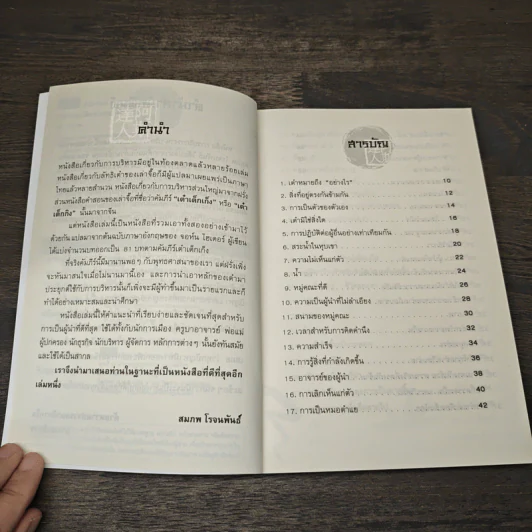 คำนำ
หนังสือเกี่ยวกับการบริหารมีอยู่ในท้องตลาดแล้วหลายร้อยเล่ม
หนังสือเกี่ยวกับลัทธิเต๋าของเล่าจื๊อก็มีผู้แปลมาเผยแพร่เป็นภาษา
ไทยแล้วหลายสำนวน หนังสือเกี่ยวกับการบริหารส่วนใหญ่มาจากฝรั่ง
ส่วนหนังสือคำสอนของเล่าจื๊อที่ชื่อว่าคัมภีร์ "เต๋าเต็กเก็ง" หรือ "เต๋า
เต็กก้ง" นั้นมาจากจีน
แต่หนังสือเล่มนี้เป็นหนังสือที่รวมเอาทั้งสองอย่างเข้ามาไว้
ด้วยกัน แปลมาจากต้นฉบับภาษาอังกฤษของ จอห์น ไฮเดอร์ ผู้เขียน
ได้แบ่งจำนวนบทออกเป็น ๘๑ บทตามคัมภีร์เต๋าเต็กเก็ง
ที่จริงคัมภีร์นี้มีมานานพอๆ กับพุทธศาสนาของเรา แต่ฝรั่งเพิ่ง
จะหันมาสนใจเมื่อไม่นานมานี้เอง และการนำเอาหลักของเต๋ามา
ประยุกต์ใช้กับการบริหารนั้นก็เพิ่งจะมีผู้ทำขึ้นมาเป็นรายแรกและก็
ทำได้อย่างเหมาะสมและน่าศึกษา
หนังสือเล่มนี้ให้คำแนะนำที่เรียบง่ายและชัดเจนที่สุดสำหรับ
การเป็นผู้นำที่ดีที่สุด ใช้ได้ทั้งกับนักการเมือง ครูบาอาจารย์ พ่อแม่
ผู้ปกครอง นักธุรกิจ นักบริหาร ผู้จัดการ หลักการต่างๆ นั้นยังทันสมัย
และใช้ได้เป็นสากล
เราจึงนำมาเสนอท่านในฐานะที่เป็นหนังสือที่ดีที่สุดอีก
เล่มหนึ่ง
สมภพ โรจนพันธ์
สารบัญ
1. เต๋าหมายถึง "อย่างไร" 10
2. สิ่งที่อยู่ตรงกันข้ามกัน 12
3. การเป็นตัวของตัวเอง 14
4. เต๋ามิใช่สิ่งใด 16
5. การปฏิบัติต่อผู้อื่นอย่างเท่าเทียมกัน 18
6. สระน้ำในหุบเขา 20
7. ความไม่เห็นแก่ตัว 22
8. น้ำ 24
9. หมู่คณะที่ดี 26
10. ความเป็นผู้นำที่ไม่ลำเอียง 28
11. สนามของหมู่คณะ 30
12. เวลาสำหรับการคิดคำนึง 32
13. ความสำเร็จ 34
14. การรู้สิ่งที่กำลังเกิดขึ้น 36
15. อาจารย์ของผู้นำ 38
16. การเลิกเห็นแก่ตัว 40
17. การเป็นหมอตำแย 42